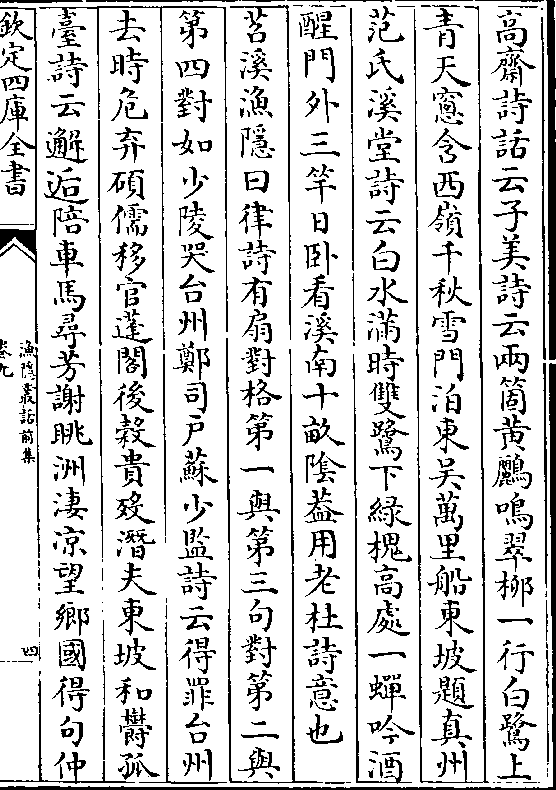 高齋詩話云子美詩云兩箇黃鸝鳴翠柳一行白鷺上
青天窻含西嶺千秋雪門泊東吳萬里船東坡題真州
范氏溪堂詩云白水滿時雙鷺下綠槐高處一蟬吟酒
醒門外三竿日卧看溪南十畝陰葢用老杜詩意也
苕溪漁隱曰律詩有扇對格第一與第三句對第二與
第四對如少陵哭台州鄭司戶蘇少監詩云得罪台州
去時危弃碩儒移官蓬閣後糓貴歿潛夫東坡和欝孤
臺詩云邂逅陪車馬尋芳謝眺洲淒凉望鄉國得句仲
欽定四庫全書
漁隱叢話前集
卷九
四